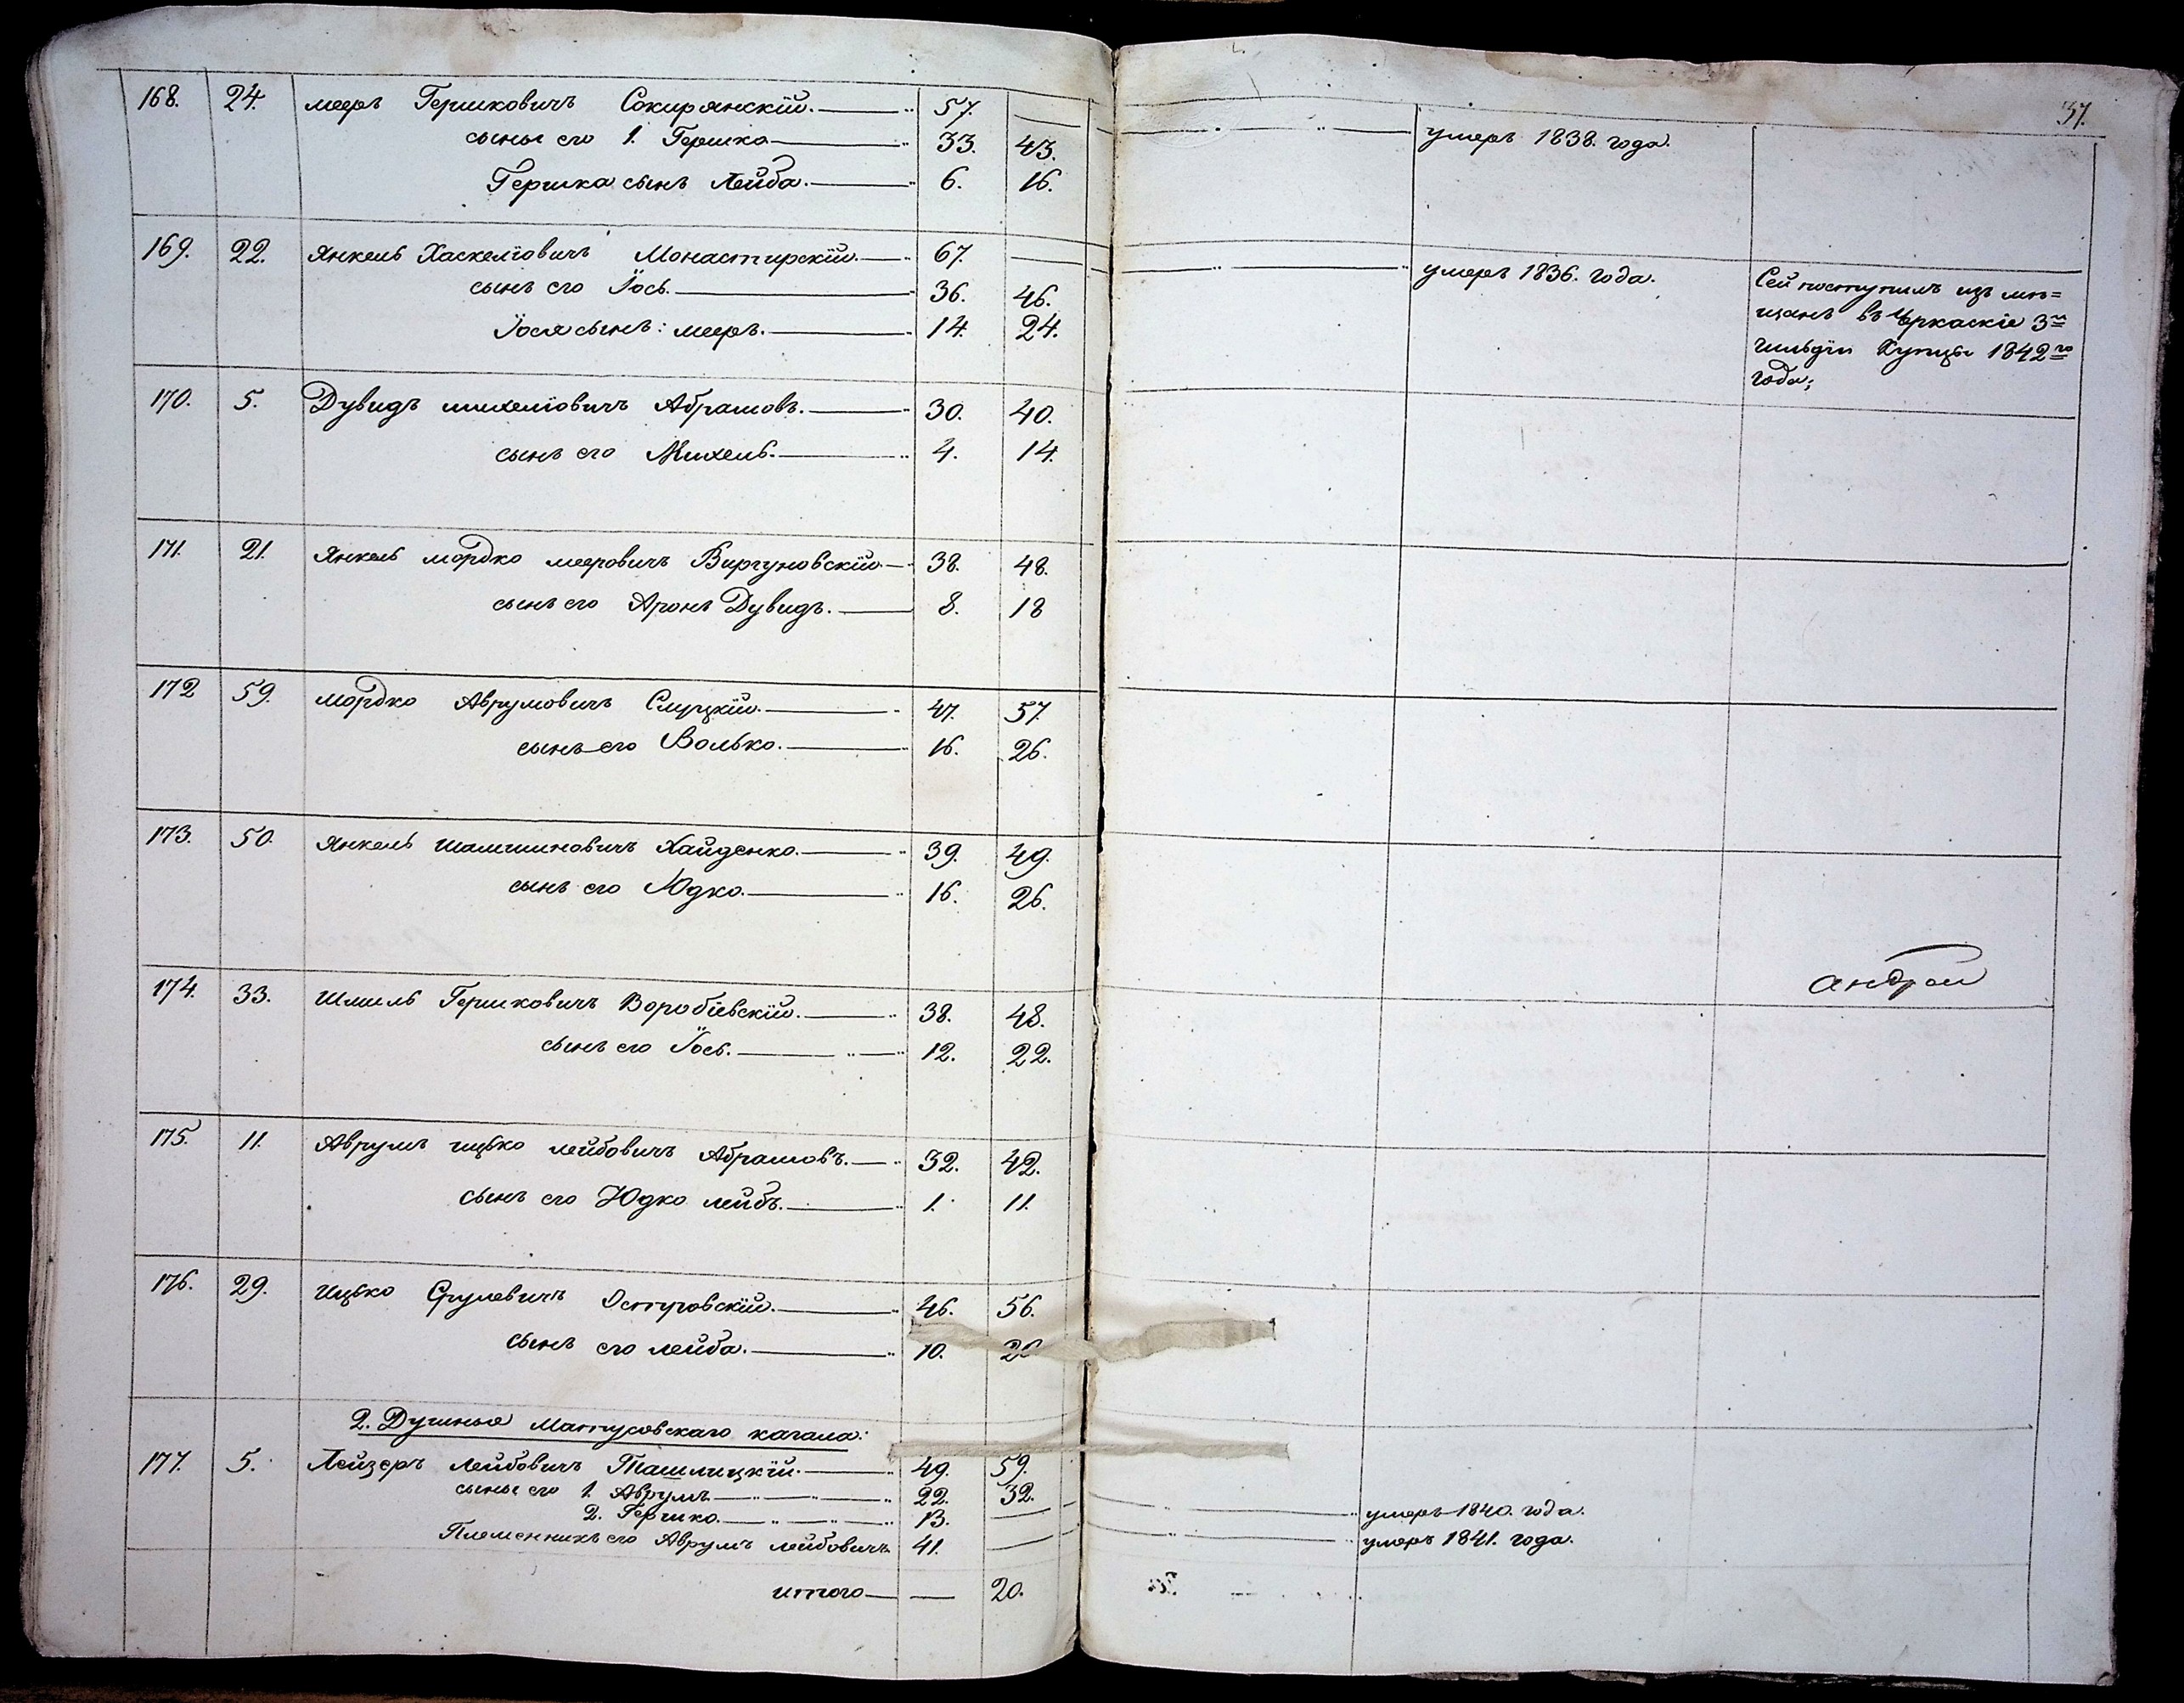 37.
168. 24. мееръ Гершковичъ Сокирянскїй. 57. умеръ 1838. года.
сыны его 1. Гершка 33. 43.
Гершка сынъ Лейба. 6. 16.
169. 22. Янкель Хаскелїовичъ Монастирскїй. 67. умеръ 1836. года.
сынъ его Їось. 36. 46.
Їося сынъ: мееръ. 14. 24.
Сей поступилъ изъ мѣ=
щанъ въ Черкаскїе 3й
гильдїи Купцы 1842го
года;
170. 5. Дувидъ михелїовичъ Абрамовъ. 30. 40.
сынъ его Михель. 4. 14.
171. 21. Янкель мордко мееровичъ Виргуновскїй 38. 48.
сынъ его Аронъ Дувидъ. 8. 18
172 59. мордко Аврумовичъ Слуцкїй. 47. 57.
сынъ его Волько. 16. 26.
173. 50. Янкель Шамшиновичъ Хайденко. 39. 49.
сынъ его Юдко. 16. 26.
174. 33. Шмиль Гершковичъ Воробїевскїй. 38. 48.
сынъ его Їось. 12. 22.
175. 11. Аврумъ ицько лейбовичъ Абрамовъ. 32. 42.
сынъ его Юдко лейбъ. 1. 11.
176. 29. Ицько Срулевичъ Островскїй. 46. 56.
сынъ его лейба. 10. 20
2. Душныя Матусовскаго кагала:
177. 5. Лейзеръ Лейбовичъ Ташлицкїй. 49. 59.
сыны его 1. Аврумъ 22. 32.
2. Гершко. 13. умеръ 1840. года.
Племенникъ его Аврумъ лейбовичъ 41. умеръ 1841. года.
итого 20.